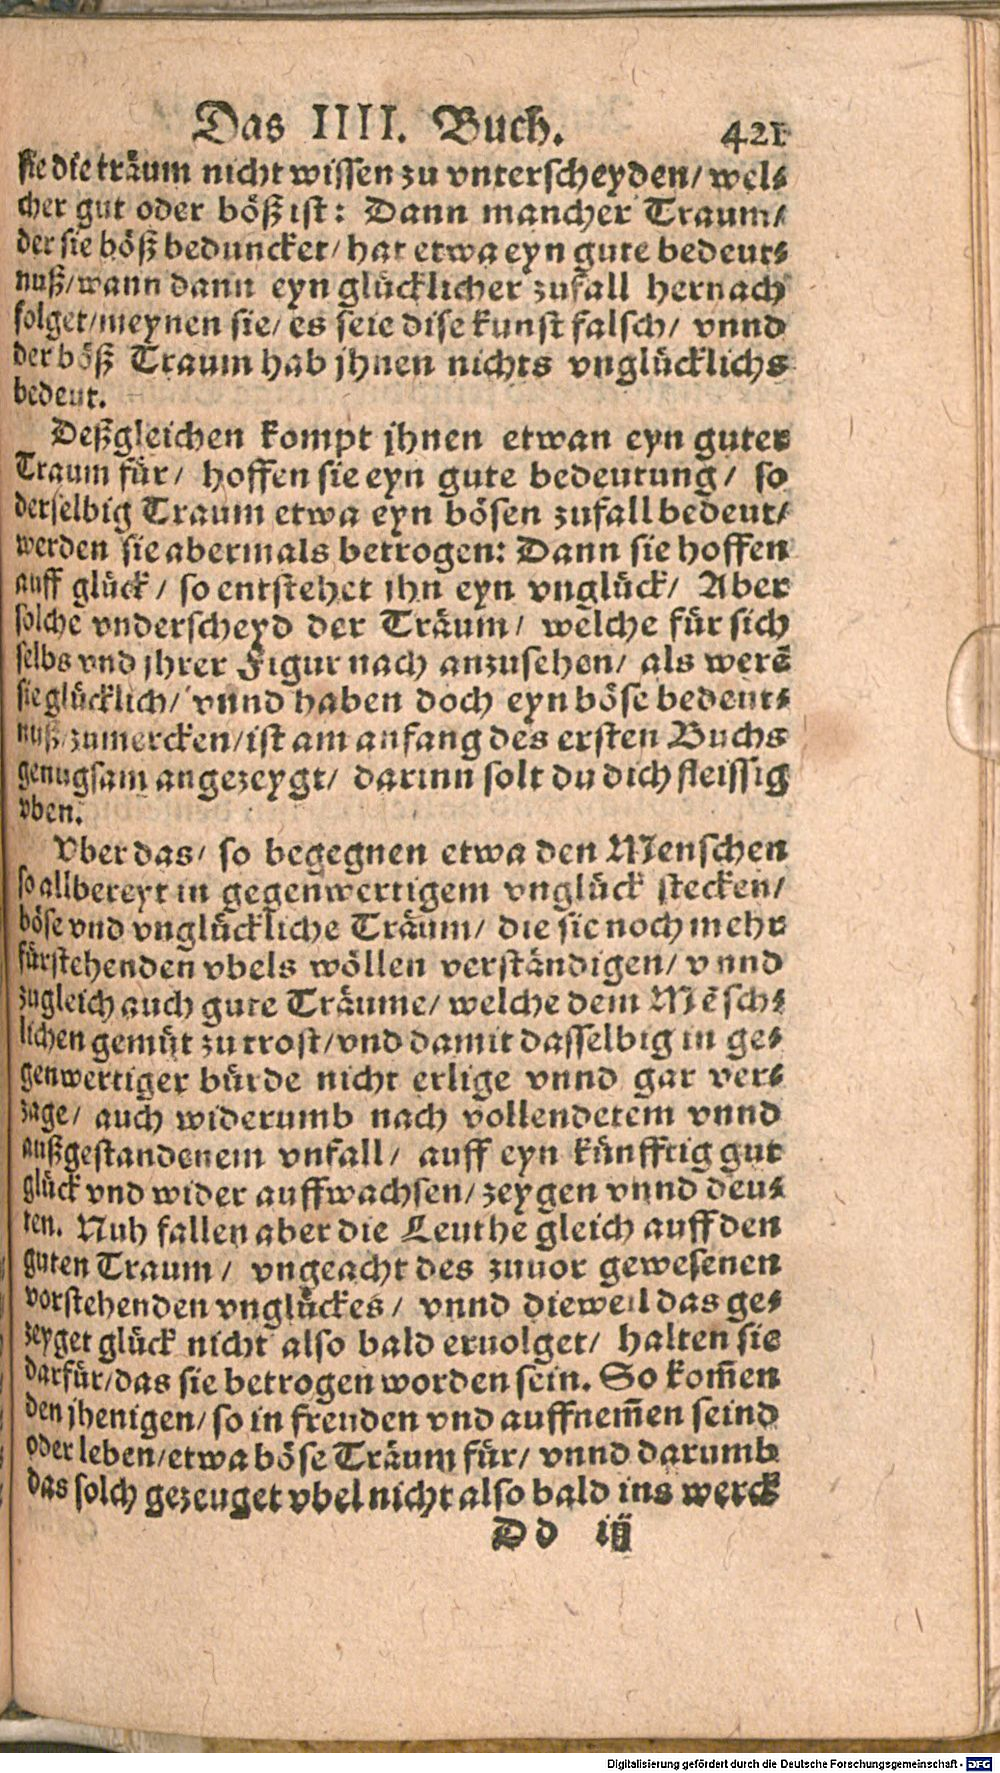 Das IIII. Buch. 421
sie die träum nicht wissen zu vnterscheyden/ wel⸗
cher gut oder böß ist: Dann mancher Traum/
der sie böß beduncket/ hat etwa eyn gute bedeut⸗
nuß/ wann dann eyn glücklicher zufall hernach
folget/ meynen sie/ es seie dise kunst falsch/ vnnd
der böß Traum hab jhnen nichts vnglücklichs
bedeut.
Deßgleichen kompt jhnen etwan eyn guter
Traum für/ hoffen sie eyn gute bedeutung/ so
derselbig Traum etwa eyn bösen zufall bedeut/
werden sie abermals betrogen: Dann sie hoffen
auff glück/ so entstehet jhn eyn vnglück/ Aber
solche vnderscheyd der Träum/ welche für sich
selbs vnd jhrer Figur nach anzusehen/ als werẽ
sie glücklich/ vnnd haben doch eyn böse bedeut⸗
nuß/ zumercken/ ist am anfang des ersten Buchs
genugsam angezeygt/ darinn solt du dich fleissig
vben.
Vber das/ so begegnen etwa den Menschen
so allbereyt in gegenwertigem vnglück stecken/
böse vnd vnglückliche Träum/ die sie noch mehr
fürstehenden vbels wöllen verständigen/ vnnd
zugleich auch gute Träume/ welche dem Mẽsch⸗
lichen gemüt zu trost/ vnd damit dasselbig in ge⸗
genwertiger bürde nicht erlige vnnd gar ver⸗
zage/ auch widerumb nach vollendetem vnnd
außgestandenem vnfall/ auff eyn künfftig gut
glück vnd wider auffwachsen/ zeygen vnnd deu⸗
ten. Nuh fallen aber die Leuthe gleich auff den
guten Traum/ vngeacht des zuuor gewesenen
vorstehenden vnglückes/ vnnd dieweil das ge⸗
zeyget glück nicht also bald eruolget/ halten sie
darfür/ das sie betrogen worden sein. So kom̃en
den jhenigen/ so in freuden vnd auffnem̃en seind
oder leben/ etwa böse Träum für/ vnnd darumb
das solch gezeuget vbel nicht also bald ins werck
Dd iij
Digitalisierung gefördert durch die Deutsche Forschungsgemeinschaft - DFG